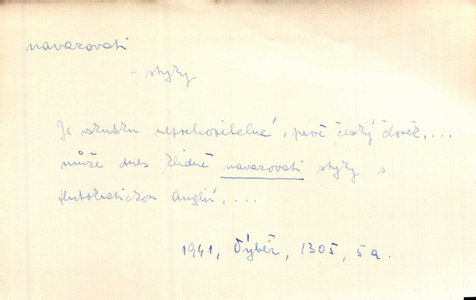 navazovati
- styky
Je vskutku nepochopitelné, proč český člověk, ...
může dnes klidně navazovati styky s
plutokratickou Anglií, ...
1941, Výběr, 1305, 5a.